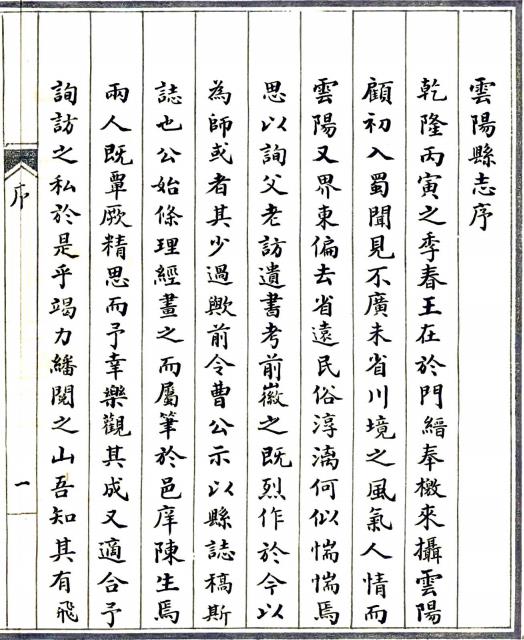 雲陽縣志序
乾隆丙寅之季春王在於門縉奉檄來攝雲陽
顧初入蜀聞見不廣未省川境之風氣人情而
雲陽又界東偏去省遠民俗淳漓何似惴惴焉
思以詢父老訪遺書考前徽之既烈作於今以
為師或者其少過歟前令曹公示以縣誌稿斯
誌也公始條理經畫之而屬筆於邑庠陳生焉
兩人既覃厥精思而予幸樂觀其成又適合予
詢訪之私於是乎竭力繙閱之山吾知其有飛
序
一